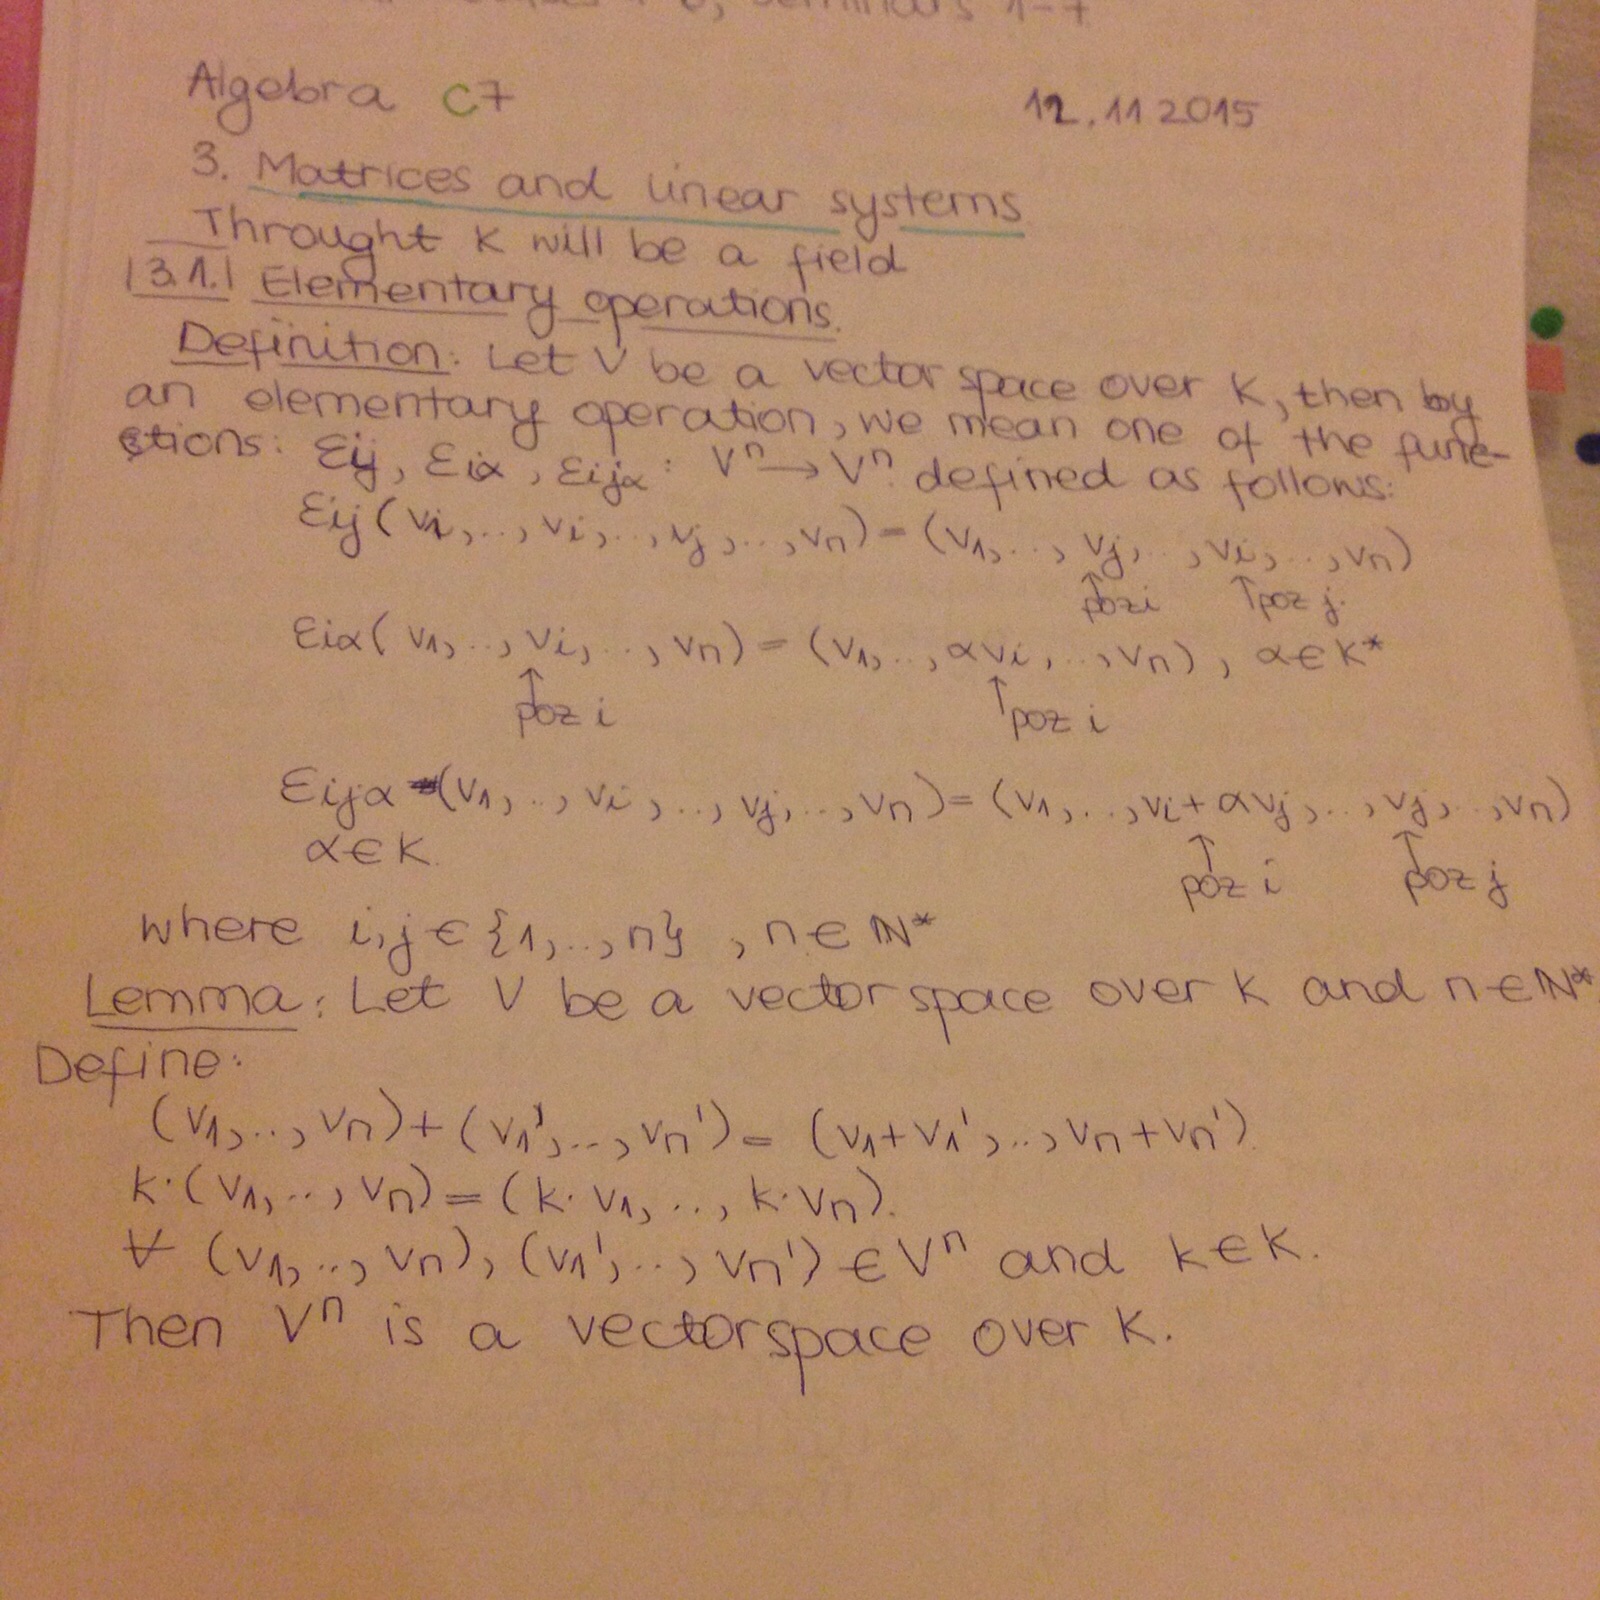 seminars 1-7
Algebra C7 12.11 2015
3. Matrices and linear systems
Throught K will be a field
3.1. Elementary operations.
Definition: Let V be a vector space over K, then by
an elementary operation, we mean one of the func-
ctions: εij, εiα, εijα : Vⁿ → Vⁿ defined as follows:
εij (vi, .., vi, .., vj, .., vn) = (v1, .., vj, .., vi, .., vn)
↑ poz i ↑ poz j.
εiα ( v1, .., vi, .., vn) = (v1, .., αvi, .., vn), α∈K*
↑ poz i ↑ poz i
εijα (v1, .., vi, .., vj, .., vn) = (v1, .., vi + αvj, .., vj, .., vn)
α∈K. ↑ poz i ↑ poz j
where i,j ∈ {1, .., n} , n∈ℕ*
Lemma: Let V be a vector space over K and n∈ℕ*
Define:
(v1, .., vn) + (v1', .., vn') = (v1+v1', .., vn+vn')
k·(v1, .., vn) = (k·v1, .., k·vn).
∀ (v1, .., vn), (v1', .., vn') ∈ Vⁿ and k∈K.
Then Vⁿ is a vectorspace over K.